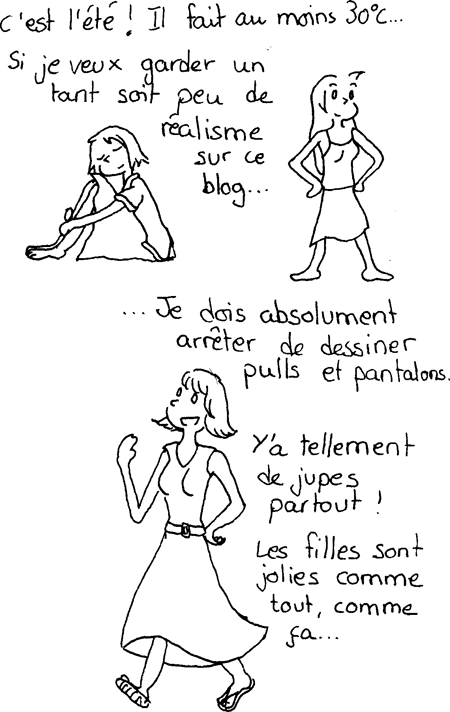 C'est l'été ! Il fait au moins 30°C...
Si je veux garder un
tant soit peu de
réalisme
sur ce
blog...
... Je dois absolument
arrêter de dessiner
pulls et pantalons.
Y'a tellement
de jupes
partout !
Les filles sont
jolies comme
tout, comme
ça...